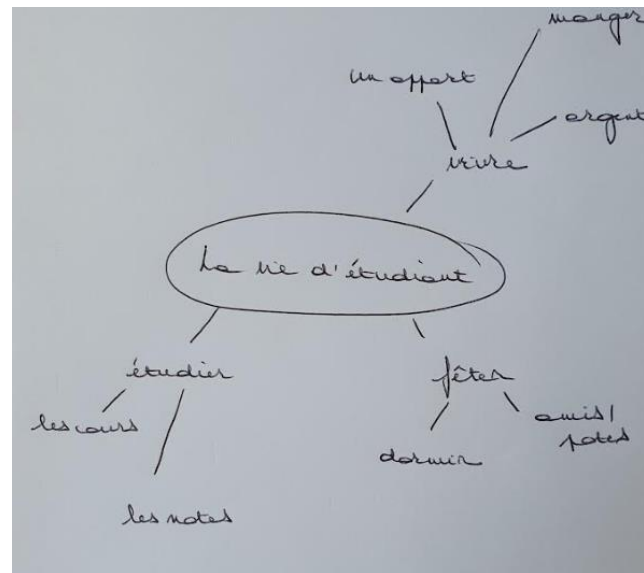 manger
un appart
argent
vivre
La vie d'étudiant
étudier
fêter
les cours
amis/
potes
dormir
les notes